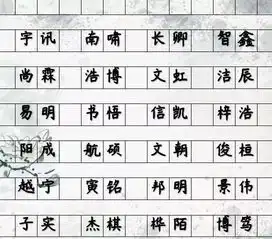 宇讯 南啸 长卿 智鑫
尚霖 浩博 文虹 洁辰
易明 书悟 信凯 梓浩
阳成 航硕 文朝 俊桓
越宇 寅铭 邦明 景伟
子实 杰棋 烨陌 博笃